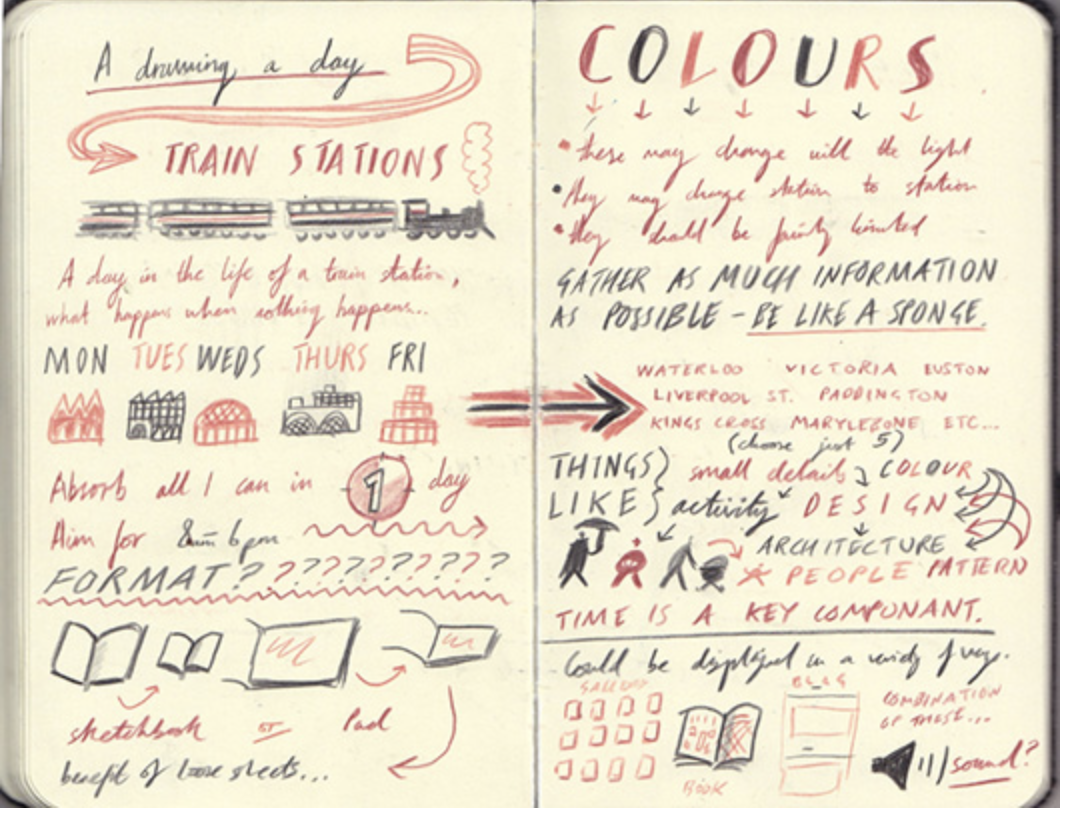 A drawing a day
TRAIN STATIONS
A day in the life of a train station,
what happens when nothing happens...
MON TUES WEDS THURS FRI
Absorb all I can in 1 day
Aim for 8am 6pm
FORMAT? ? ? ? ? ? ? ? ? ? ?
sketchbook or Pad
benefit of loose sheets...
COLOURS
• these may change with the light
• they may change station to station
• they should be fairly limited
GATHER AS MUCH INFORMATION
AS POSSIBLE - BE LIKE A SPONGE.
WATERLOO VICTORIA EUSTON
LIVERPOOL ST. PADDINGTON
KINGS CROSS MARYLEBONE ETC...
(choose just 5)
THINGS} small details COLOUR
LIKE} activity DESIGN
ARCHITECTURE
PEOPLE PATTERN
TIME IS A KEY COMPONANT.
Could be displayed in a variety of ways.
BLOG
COMBINATION
OF THESE...
sound?
BOOK